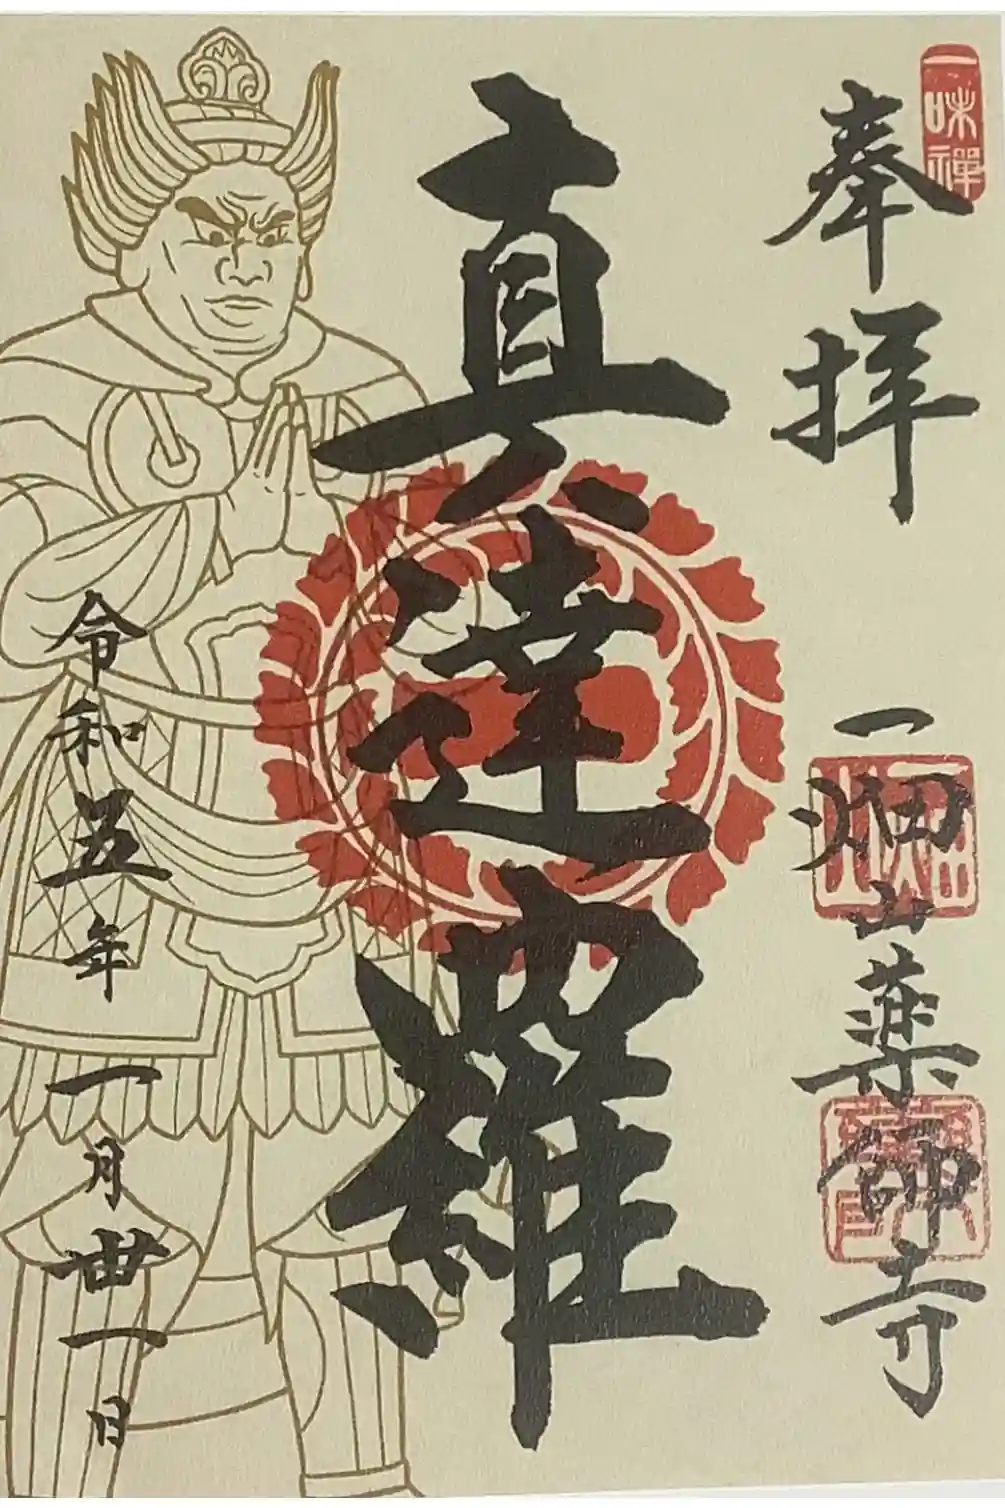 一味禪
奉拝
一畑山薬師寺
真達羅
令和五年一月丗一日